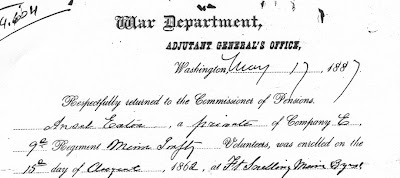 War Department,
ADJUTANT GENERAL'S OFFICE,
Washington, May 17, 1887.
Respectfully returned to the Commissioner of Pensions.
Ansel Eaton, a private of Company E,
9th Regiment Minn Infty Volunteers, was enrolled on the
15th day of August, 1862, at Ft Snelling Minn 3 yrs